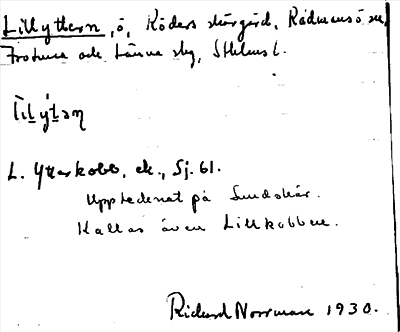 Lillyttern, ö, Röders skärgård, Rådmansö sn,
Frötuna och Länna skg, Sthlms l.
L. Ytterkobb, ek., Sj. 61.
Upptecknat på Sundskär.
Kallas även Lillkobben.
Rickard Norrman 1930.